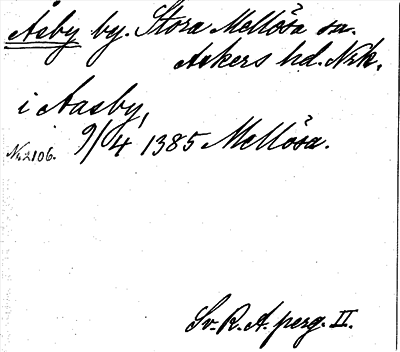 Åsby by. Stora Mellösa sn.
Askers hd. Nrk.
i Aasby,
N. 2106. 9/4 1385 Mellösa.
Sv. R. A. perg. II.